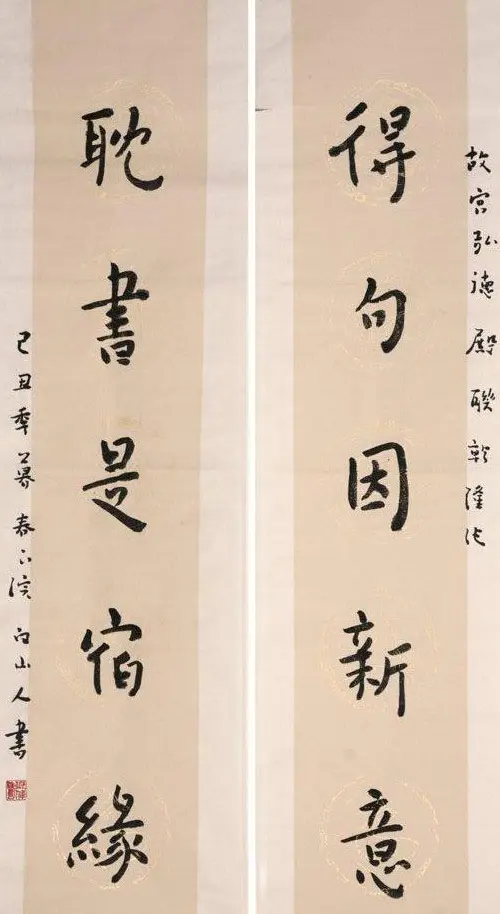 故宫弘德殿聯乾隆作
得句因新意
耽書是宿緣
己丑季暮春於院白山人書